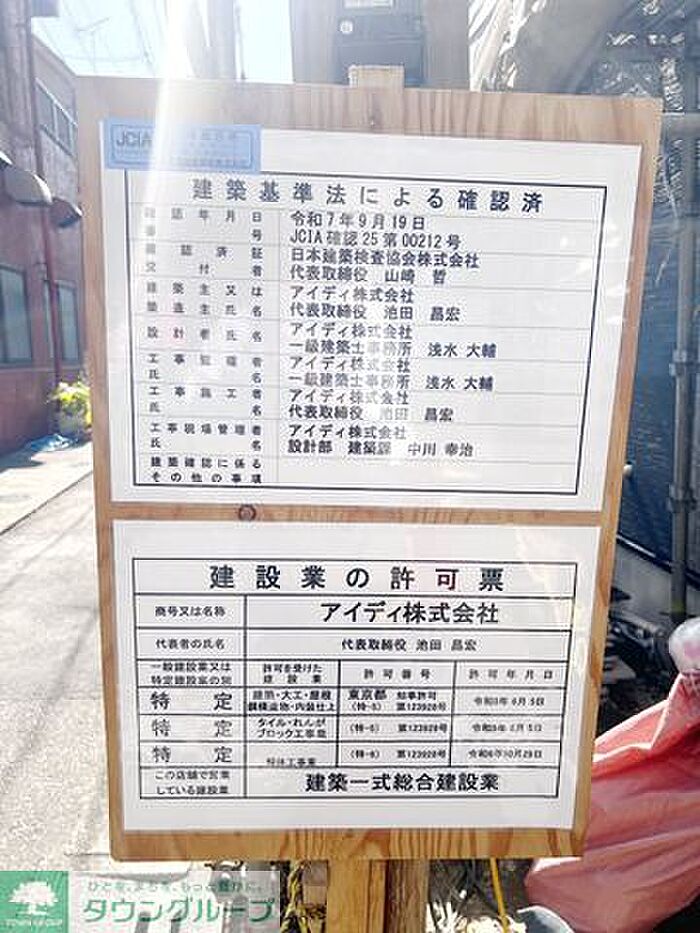 JCIA
建築基準法による確認済
確認年月日 令和7年9月19日
番号 JCIA確認25第00212号
確認済証 日本建築検査協会株式会社
交付者 代表取締役 山崎 哲
建築主又は アイディ株式会社
築造主氏名 代表取締役 池田 昌宏
設計者氏名 アイディ株式会社
一級建築士事務所 浅水 大輔
工事監理者 アイディ株式会社
氏名 一級建築士事務所 浅水 大輔
工事施工者 アイディ株式会社
氏名 代表取締役 池田 昌宏
工事現場管理者 アイディ株式会社
氏名 設計部 建築課 中川 幸治
建築確認に係る
その他の事項
建設業の許可票
商号又は名称 アイディ株式会社
代表者の氏名 代表取締役 池田 昌宏
一般建設業又は 許可を受けた 許可番号 許可年月日
特定建設業の別 建設業
特定 建築・大工・屋根 東京都 知事許可
鋼構造物・内装仕上 (特-5) 第123928号 令和5年6月5日
特定 タイル・れんが
ブロック工事業 (特-5) 第123928号
特定 解体工事業 (特-6) 第123928号 令和6年10月29日
この店舗で営業
している建設業 建築一式総合建設業
TOWN GROUP
ひとを、まちを、もっと豊かに。
タウングループ